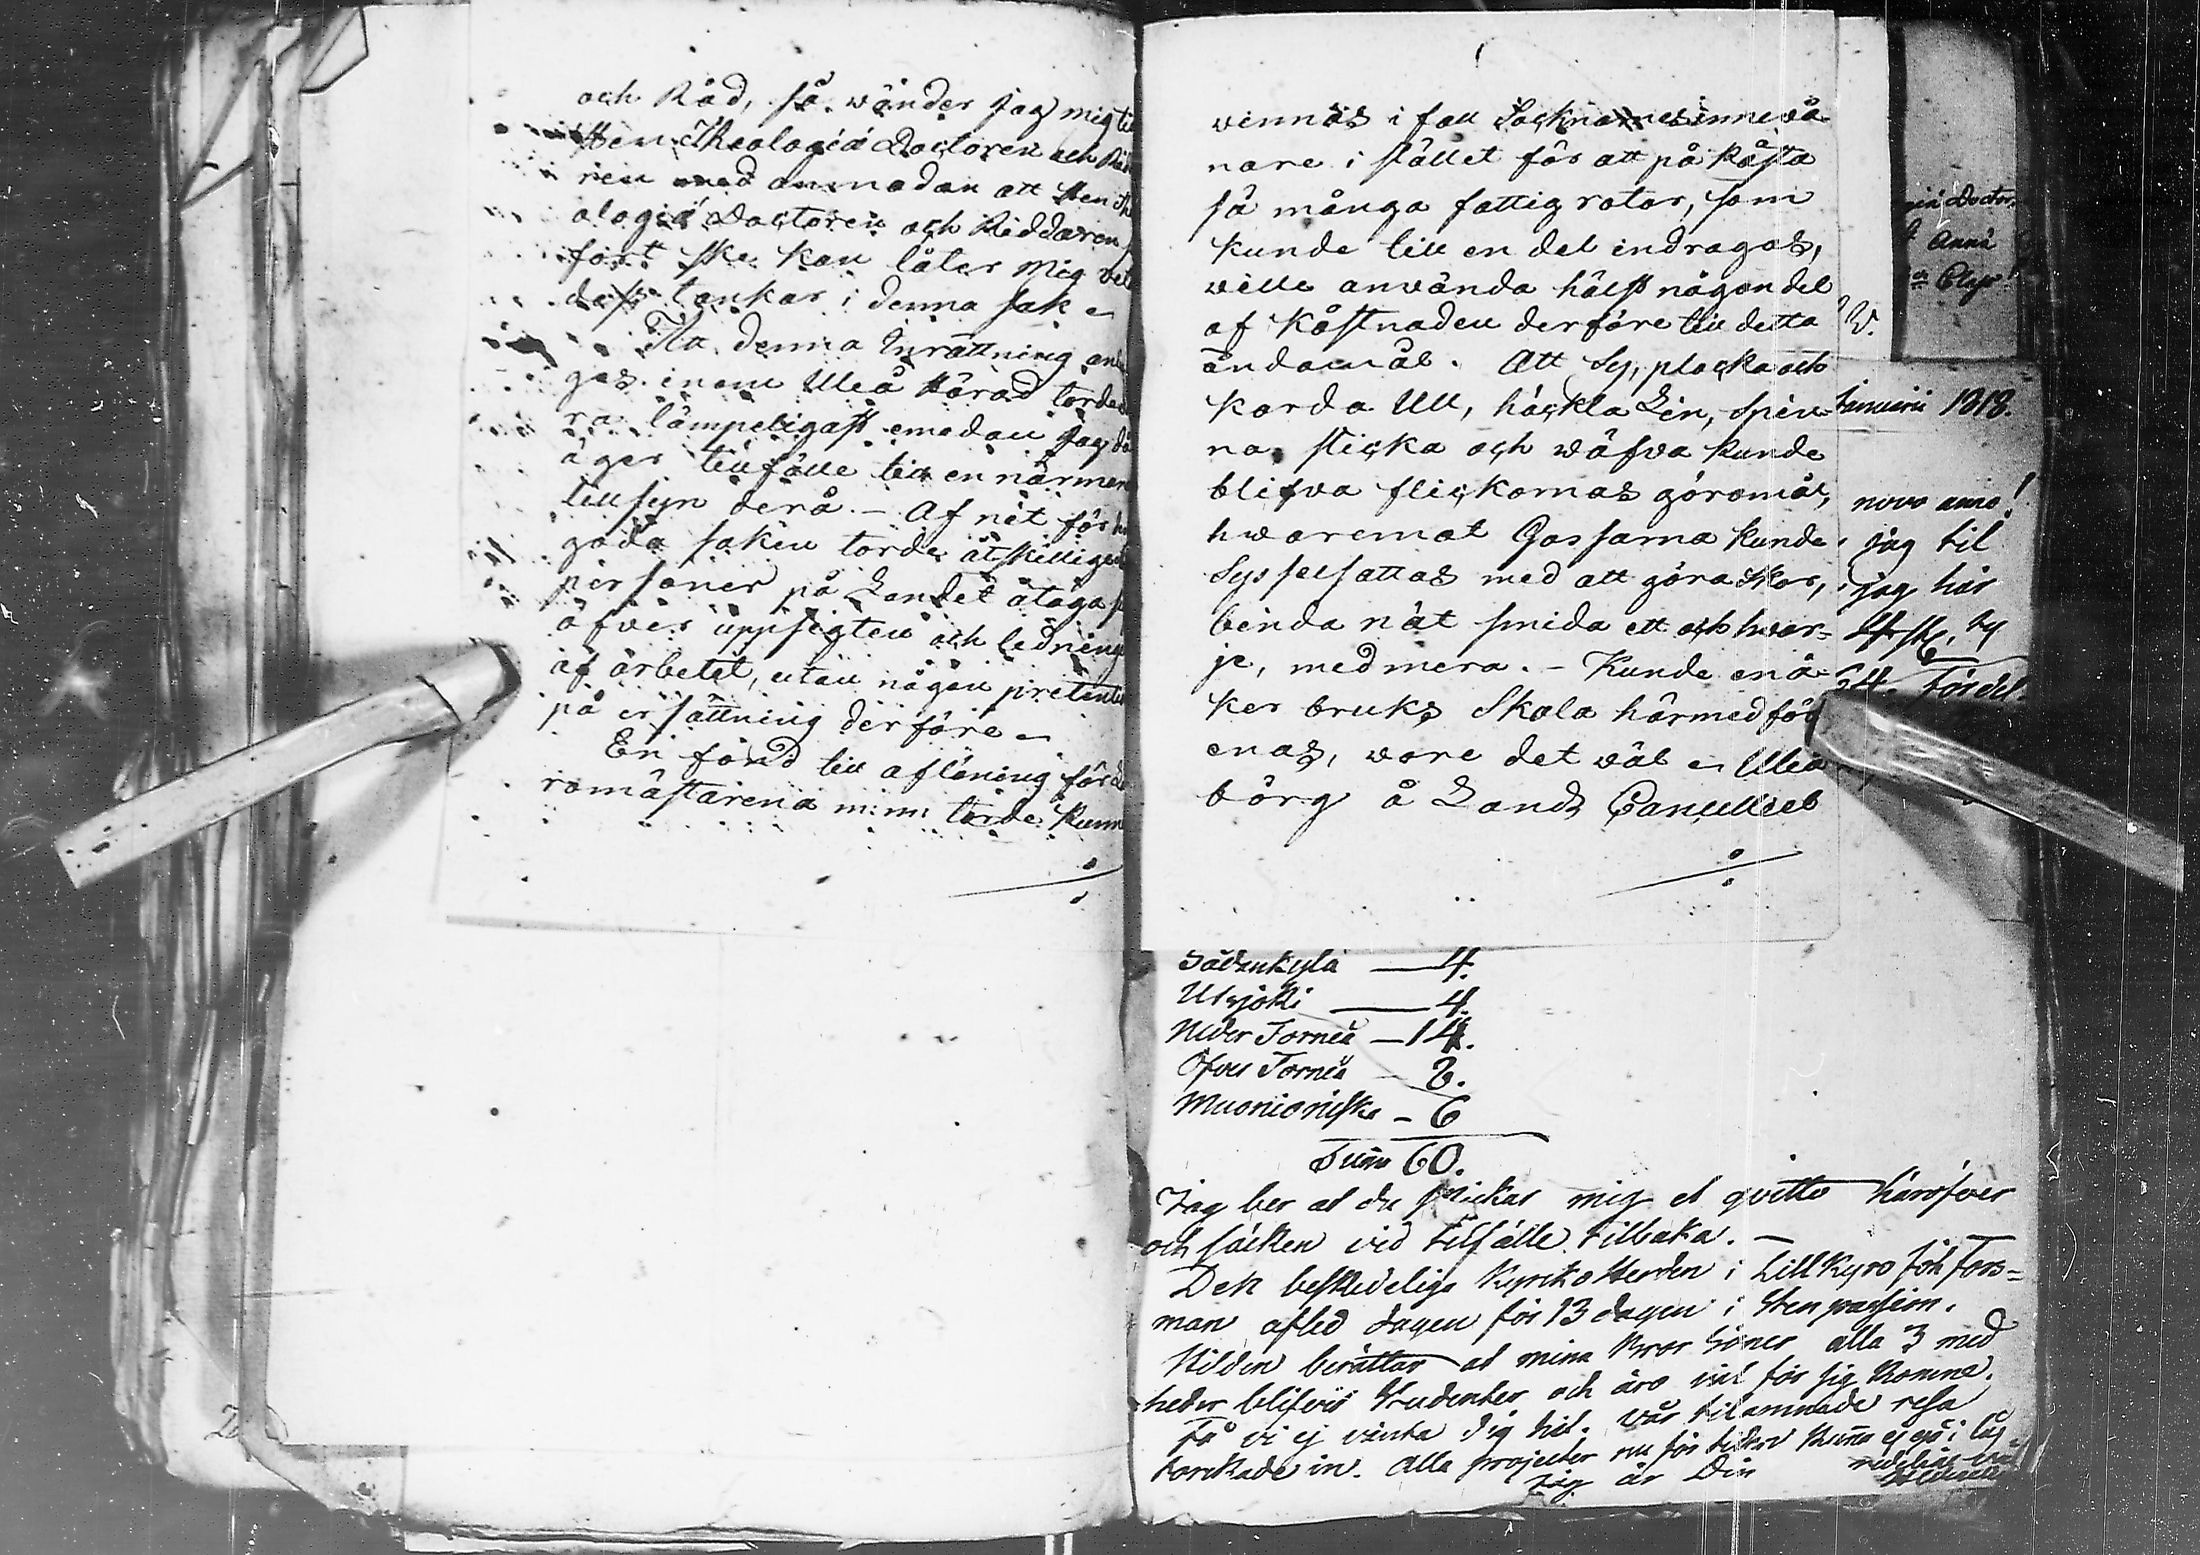 och Råd, så wänder jag mig til
Hen Theologiæ Doctoren och Rid
ren med anmodan att Hen Th
ologiæ Doctoren och Riddaren
fört ske kan låter mig vet
dess tankar i denna sak
Att denna Inrättning an
gas inom Uleå Härad torde
ra lämpeligast emedan jag då
äger tillfälle till en närmer
tillsyn derå. - Af nit för
goda saken torde åtskillige
personer på Landet åtaga s
öfver uppsigten och ledning
af arbetet, utan någon pretention
på ersättning derföre
En fond till aflöning för
romästarena m:m: torde kunn
vinnas i fall Socknarnes innevå
nare i stället för att på kosta
så många fattig rotar, som
kunde till en del indragas,
wille använda hälst någon del
af kostnaden derföre till detta
ändamål. Att Sy, plocka och
karda Ull, häckla Lin, spin
na, sticka och wäfva kunde
blifva flickornas göromål,
hwaremot Gossarna kunde
Sysselsättas med att göra skor,
binda nät smida ett och hvar=
je, med mera. - Kunde en å
ker bruks Skola härmed för
enas, wore det wäl Uleå
borg å Lands Cancelliet
giæ Doctor
Anna
W.
Januarii 1818.
novo anno!
jag til
jag här
fördel.
Sådankylä — 4.
Utsjoki — 4.
Neder Torneå — 14.
Öfver Torneå — 8.
Muonioniska — 6
Summa 60.
Jag ber at du skickar mig et qvitto häröfver
och säcken vid tilfälle tilbaka. —
Den beskedelige Kyrko Herden i Lillkyro Joh Fors=
man afled dagen för 13 dagen i Sten passion.
Hilden berättar at mina Bror Söner alla 3 med
heder blifvit Studenter och äro väl för sig komne.
Få vi ej vänta dig hit. Vår tilämnade resa
torkade in. Alla projecter nu för tiden kunna ej gå i låg=
Jag är Din